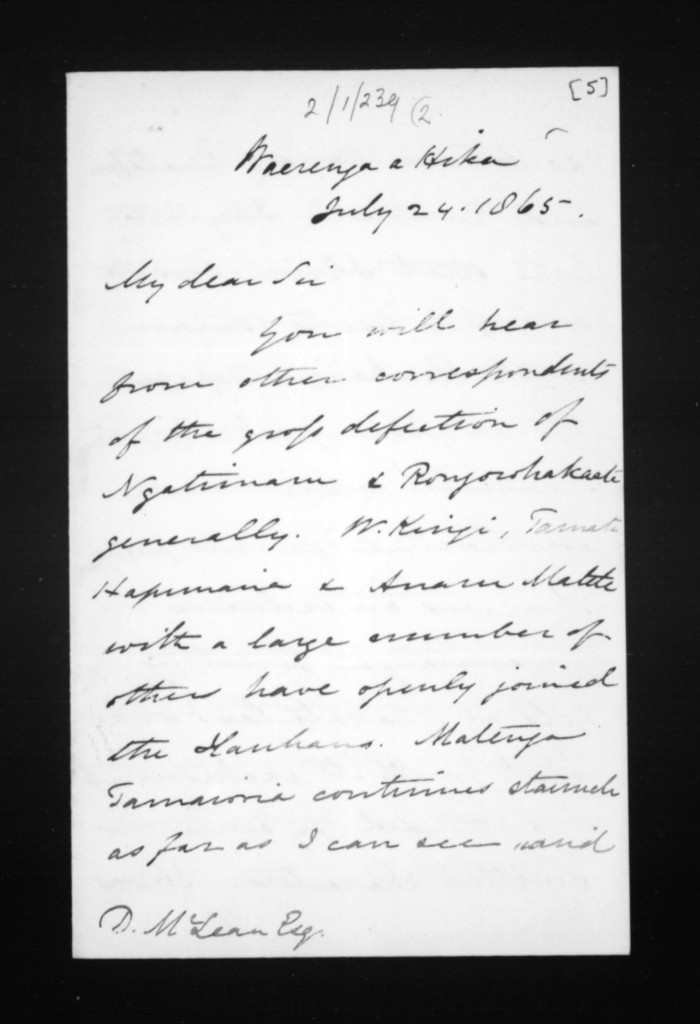 [5]
2/1/239 (2.
Waerenga a Hika
July 24. 1865.
My dear Sir
You will hear
from other correspondents
of the gross defection of
Ngatimaru & Rongowhakaata
generally. W. Kingi, Tamati
Hapimana & Anaru Matete
with a large number of
others have openly joined
the Hauhaus. Matenga
Tamaioria continues staunch
as far as I can see and
D. McLean Esq.